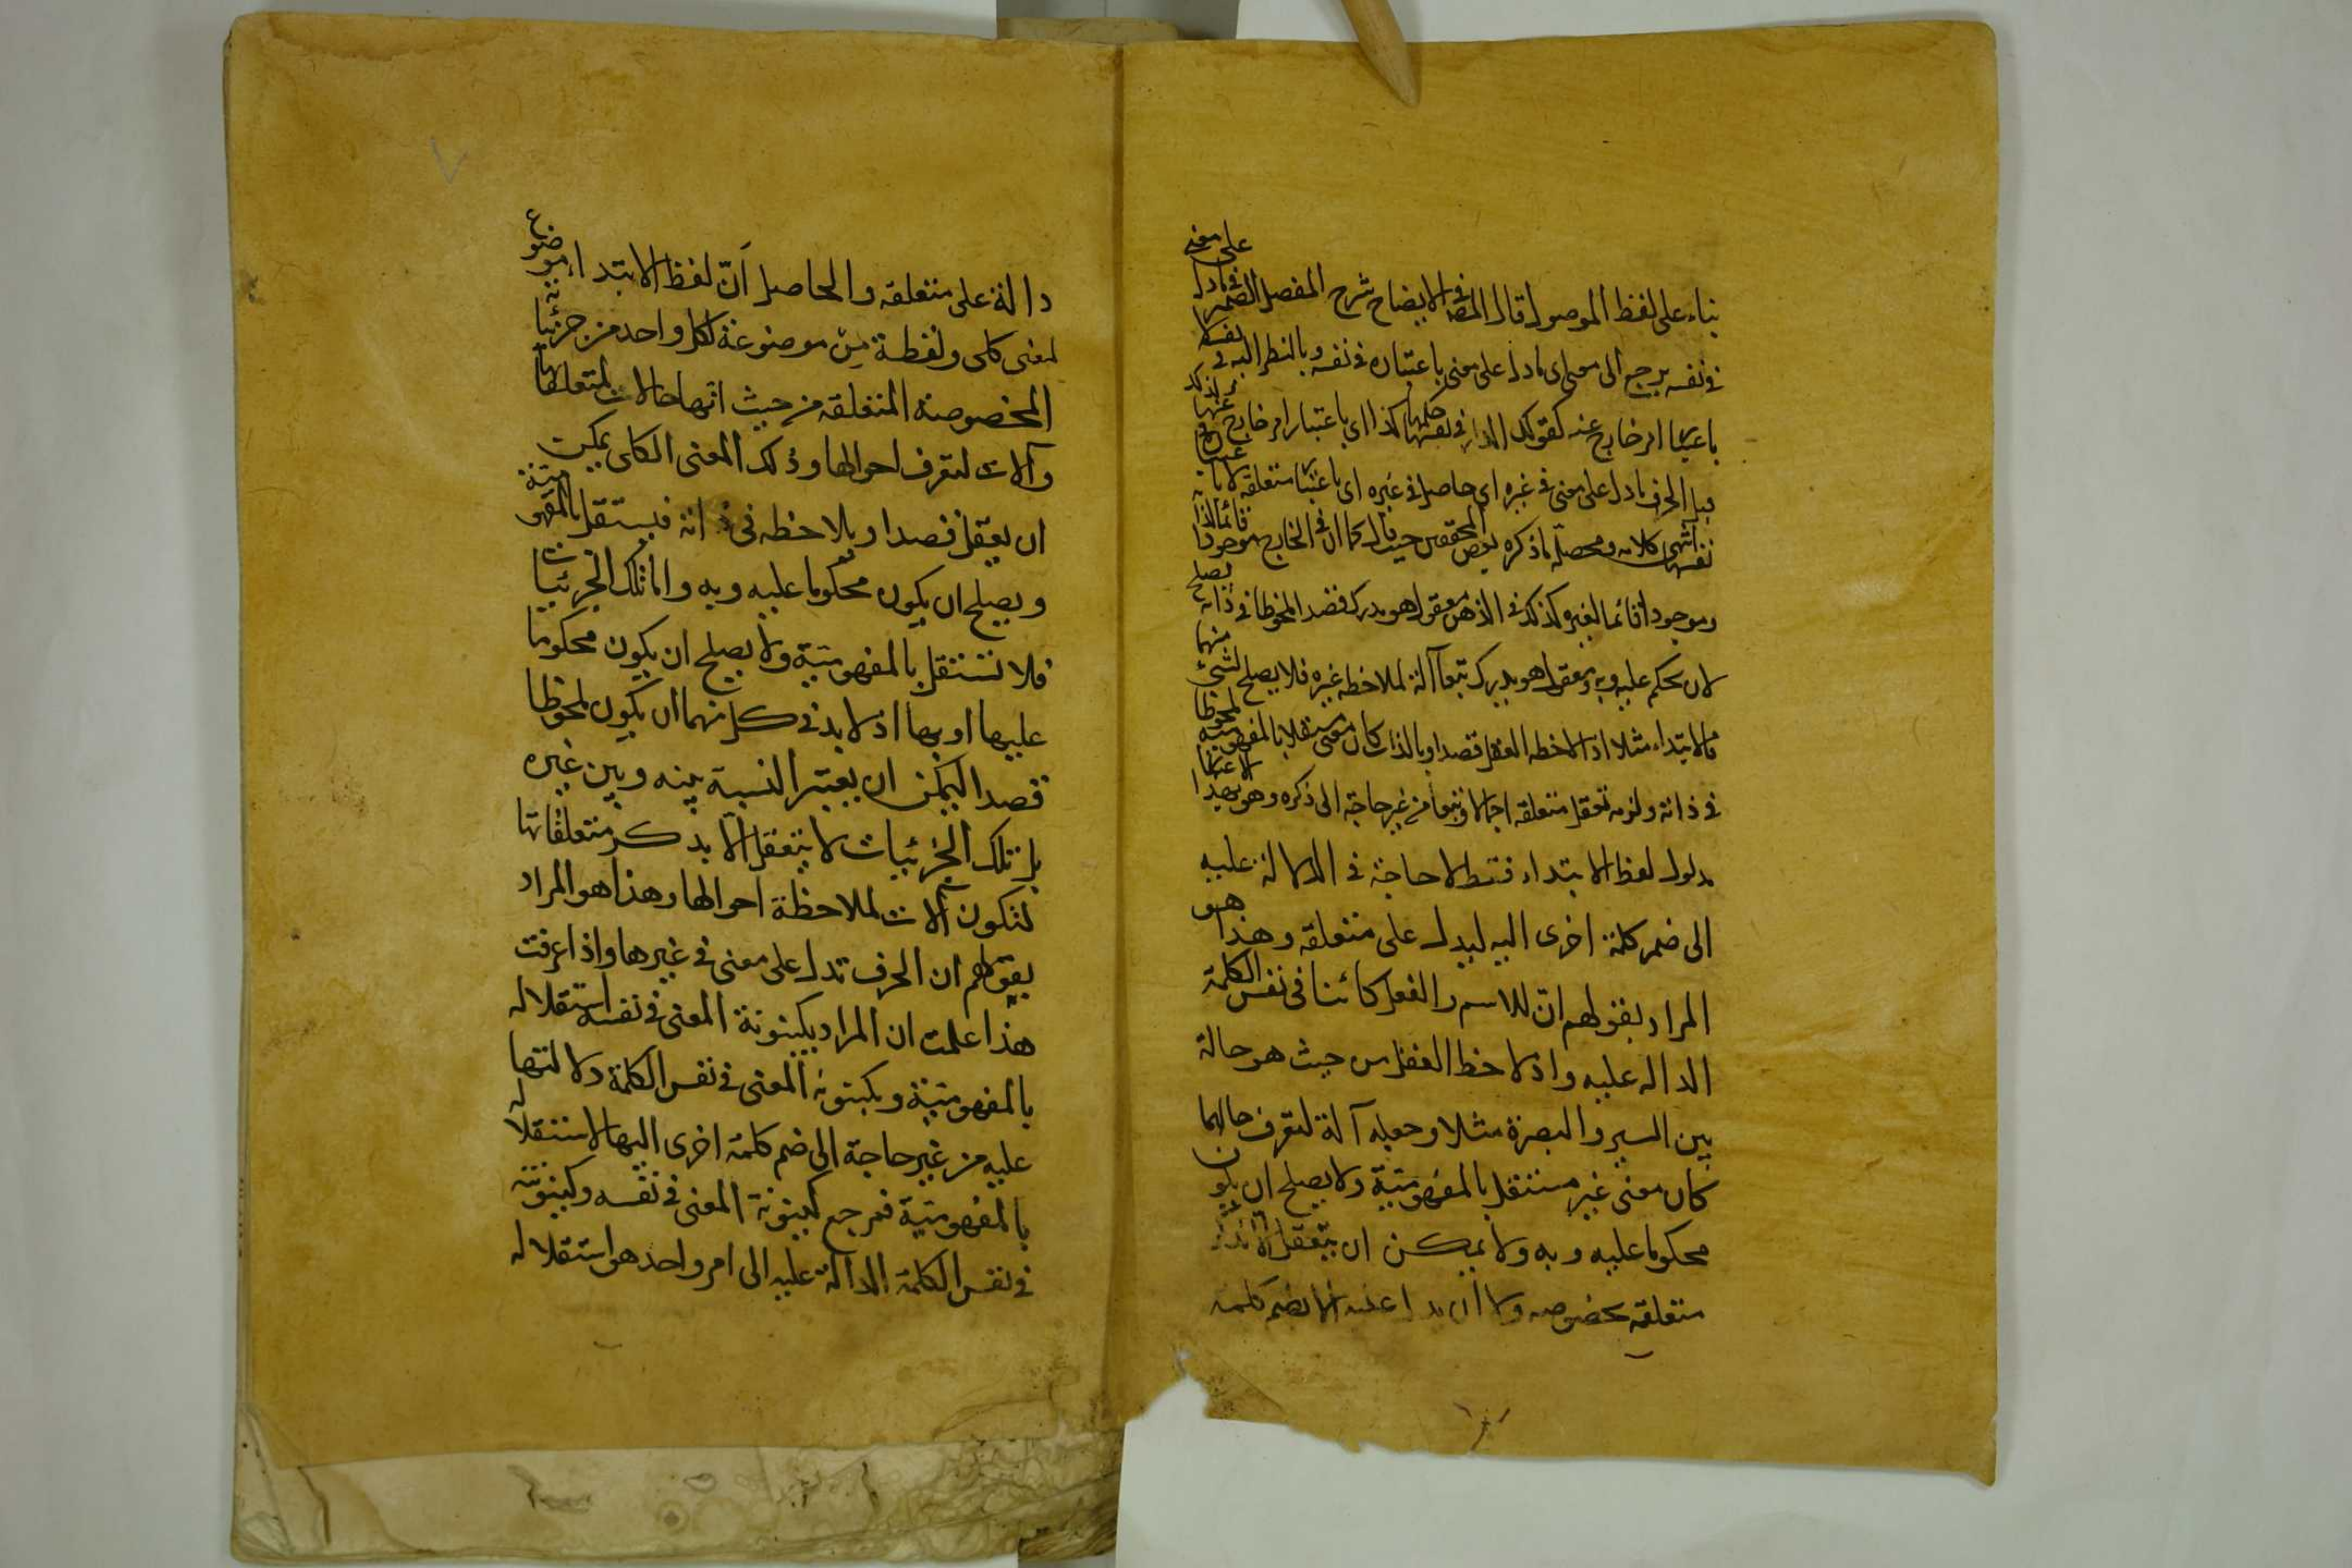 بناء على لفظ الموصول قال المصه في الايضاح شرح المفصل الضمير في مادل على معنى
في نفسه يرجع الى معنى اى مادل على معنى باعتباره في نفسه وبالنظر اليه في نفسه لا
باعتبار امر خارج عنه كقولك الدار في نفسها حكمها كذا اى لا باعتبار امر خارج عنها ولذلك
قيل الحرف مادل على معنى في غيره اى حاصل في غيره اى باعتبار متعلقه لا باعتباره في
نفسه انتهى كلامه ومحصله ما ذكره بعض المحققين حيث قال كما ان في الخارج موجودا قائما بذاته
وموجودا قائما بالغير كذلك في الذهن معقول هو مدرك قصدا ملحوظا في ذاته يصلح
لان يحكم عليه وبه ومعقول هو مدرك تبعا آلة لملاحظه غيره فلا يصلح لشئ منهما
فالابتداء مثلا اذا لاحظه العقل قصدا وبالذات كان معنى مستقلا بالمفهومية ملحوظا
في ذاته ولزمه تعقل متعلقه اجمالا وتبعا من غير حاجة الى ذكره وهو بهذا الاعتبار
مدلول لفظ الابتداء فقط لا حاجة في الدلالة عليه
الى ضم كلمة اخرى اليه ليدل على متعلقه وهذا هو
المراد بقولهم ان للاسم والفعل كائنا في نفس الكلمة
الداله عليه واذا لاحظ العقل من حيث هو حالة
بين السير والبصرة مثلا وجعله آلة لتعرف حالهما
كان معنى غير مستقل بالمفهومية ولا يصلح ان يكون
محكوما عليه وبه ولا يمكن ان يتعقل الا بذكر
متعلقه بخصوصه ولا ان يدل عليه الا بضم كلمة
دالة على متعلقه والحاصل انّ لفظ الابتداء موضوع
لمعنى كلى ولفظة مِنْ موضوعة لكل واحد من جزئياته
المخصوصة المتعلقة من حيث انها حالات لمتعلقاتها
وآلات لتعرف احوالها وذلك المعنى الكلى يمكن
ان يعقل قصدا ويلاحظه في ذاته فيستقل بالمفهومية
ويصلح ان يكون محكوما عليه وبه واما تلك الجزئيات
فلا تستقل بالمفهومية ولا يصلح ان يكون محكوما
عليها او بها اذ لا بد في كل منهما ان يكون ملحوظا
قصدا ليمكن ان يعتبر النسبة بينه وبين غيره
بل تلك الجزئيات لا يتعقل الا بذكر متعلقاتها
لتكون آلات لملاحظة احوالها وهذا هو المراد
بقولهم ان الحرف تدل على معنى في غيرها واذا عرفت
هذا علمت ان المراد بكينونة المعنى في نفسه استقلاله
بالمفهومية وبكينونة المعنى في نفس الكلمة دلالتها
عليه من غير حاجة الى ضم كلمة اخرى اليها لاستقلاله
بالمفهومية فمرجع كينونة المعنى في نفسه وكينونته
في نفس الكلمة الدالة عليه الى امر واحد هو استقلاله